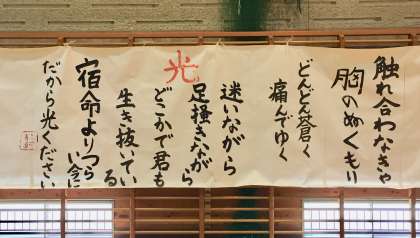 触れ合わなきゃ
胸のぬくもり
どんどん蒼く
痛んでゆく
迷いながら
足掻きながら
光
どこかで君も
生き抜いている
宿命よりつら
い今に
だから光ください